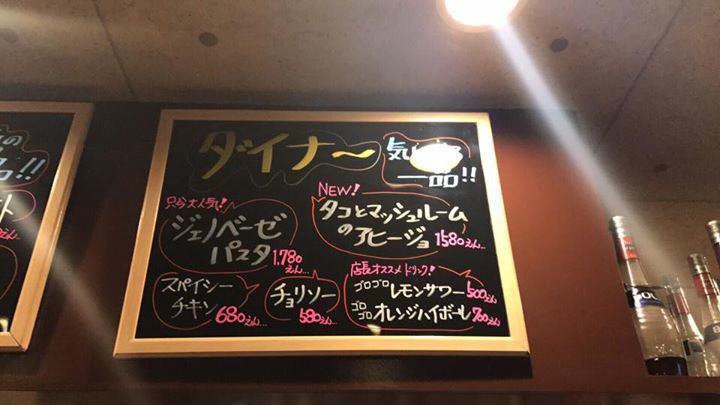 の
品!!
ト
ダイナ〜
気
一品!!
只今大人気!
ジェノベーゼ
パスタ
1,780えん…
NEW!
タコとマッシュルーム
のアヒージョ
1580えん…
スパイシー
チキン
680えん…
チョリソー
580えん…
店長オススメドリンク!
ゴロゴロ
レモンサワー
500えん
ゴロ
ゴロ
オレンジハイボール
700えん